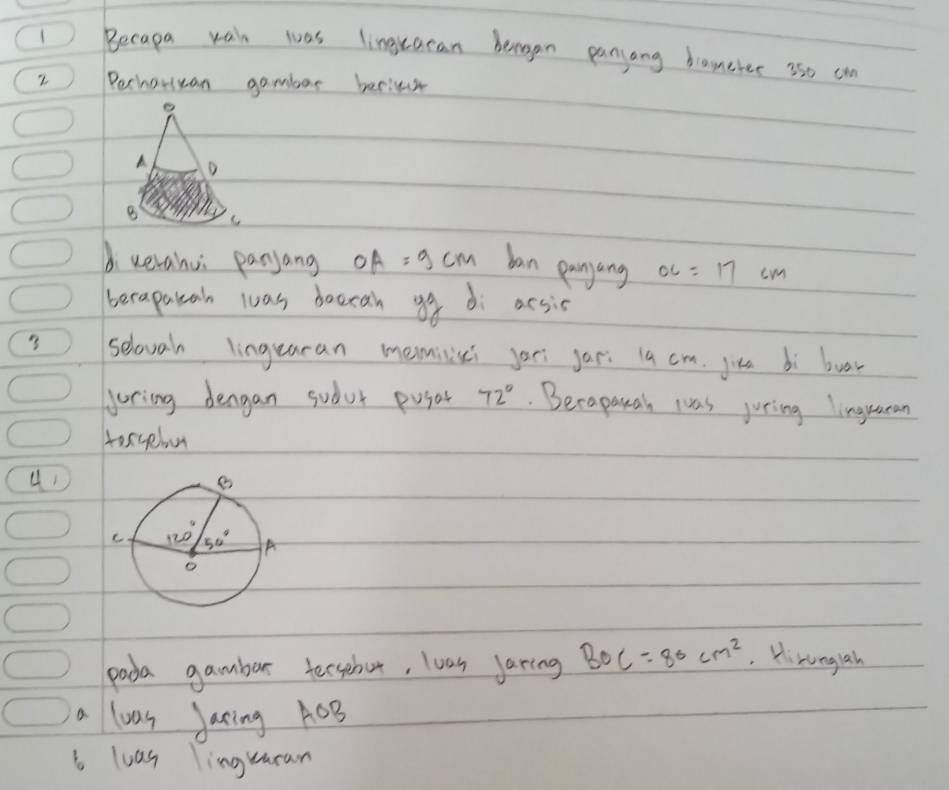 1 Berapa kah luas lingkaran dengan panjang diameter 350 cm
2 Perhatikan gambar berikut
O
A D
B C
diketahui panjang OA = 9 cm dan panjang OC = 17 cm
berapakah luas daerah yg di arsir
3 sebuah lingkaran memiliki jari jari 14 cm. jika di buat
juring dengan sudut pusat 72°. Berapakah luas juring lingkaran
tersebut
4.
B
C 120° 50° A
O
pada gambar tersebut, luas jaring BOC = 80 cm². Hitunglah
a luas Jaring AOB
b luas lingkaran